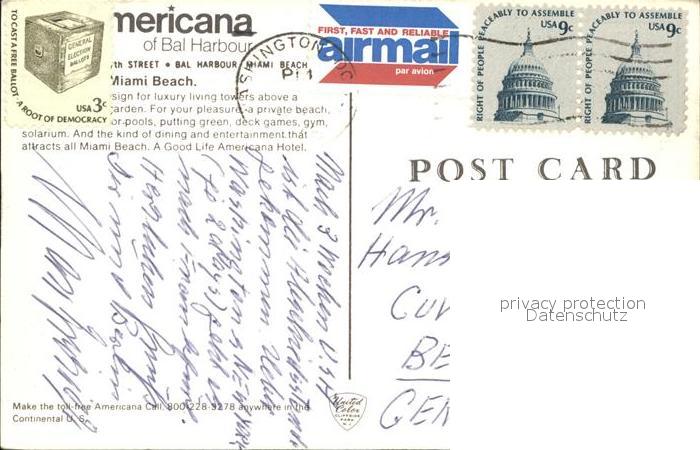 TO CAST A FREE BALLOT · A ROOT OF DEMOCRACY
GENERAL
ELECTION
BALLOTS
USA 3c
mericana
of Bal Harbour
th STREET • BAL HARBOUR MIAMI BEACH
Miami Beach.
sign for luxury living towers above a
garden. For your pleasure, a private beach,
or-pools, putting green, deck games, gym,
solarium. And the kind of dining and entertainment that
attracts all Miami Beach. A Good Life Americana Hotel.
FIRST, FAST AND RELIABLE
airmail
par avion
RIGHT OF PEOPLE PEACEABLY TO ASSEMBLE
USA 9c
RIGHT OF PEOPLE PEACEABLY TO ASSEMBLE
USA 9c
WASHINGTON, DC
PM
POST CARD
Nach 3 Wochen USA
ist die
gekommen. Über
Washington & New York
(je 2 days) geht es
nach
Herzlichen
Mr.
Han
Cuv
BE
GER
privacy protection
Datenschutz
Make the toll-free Americana Call, 800-228-3278 anywhere in the
Continental U.S.
United
Color
CLIFFSIDE
PARK
N.J.